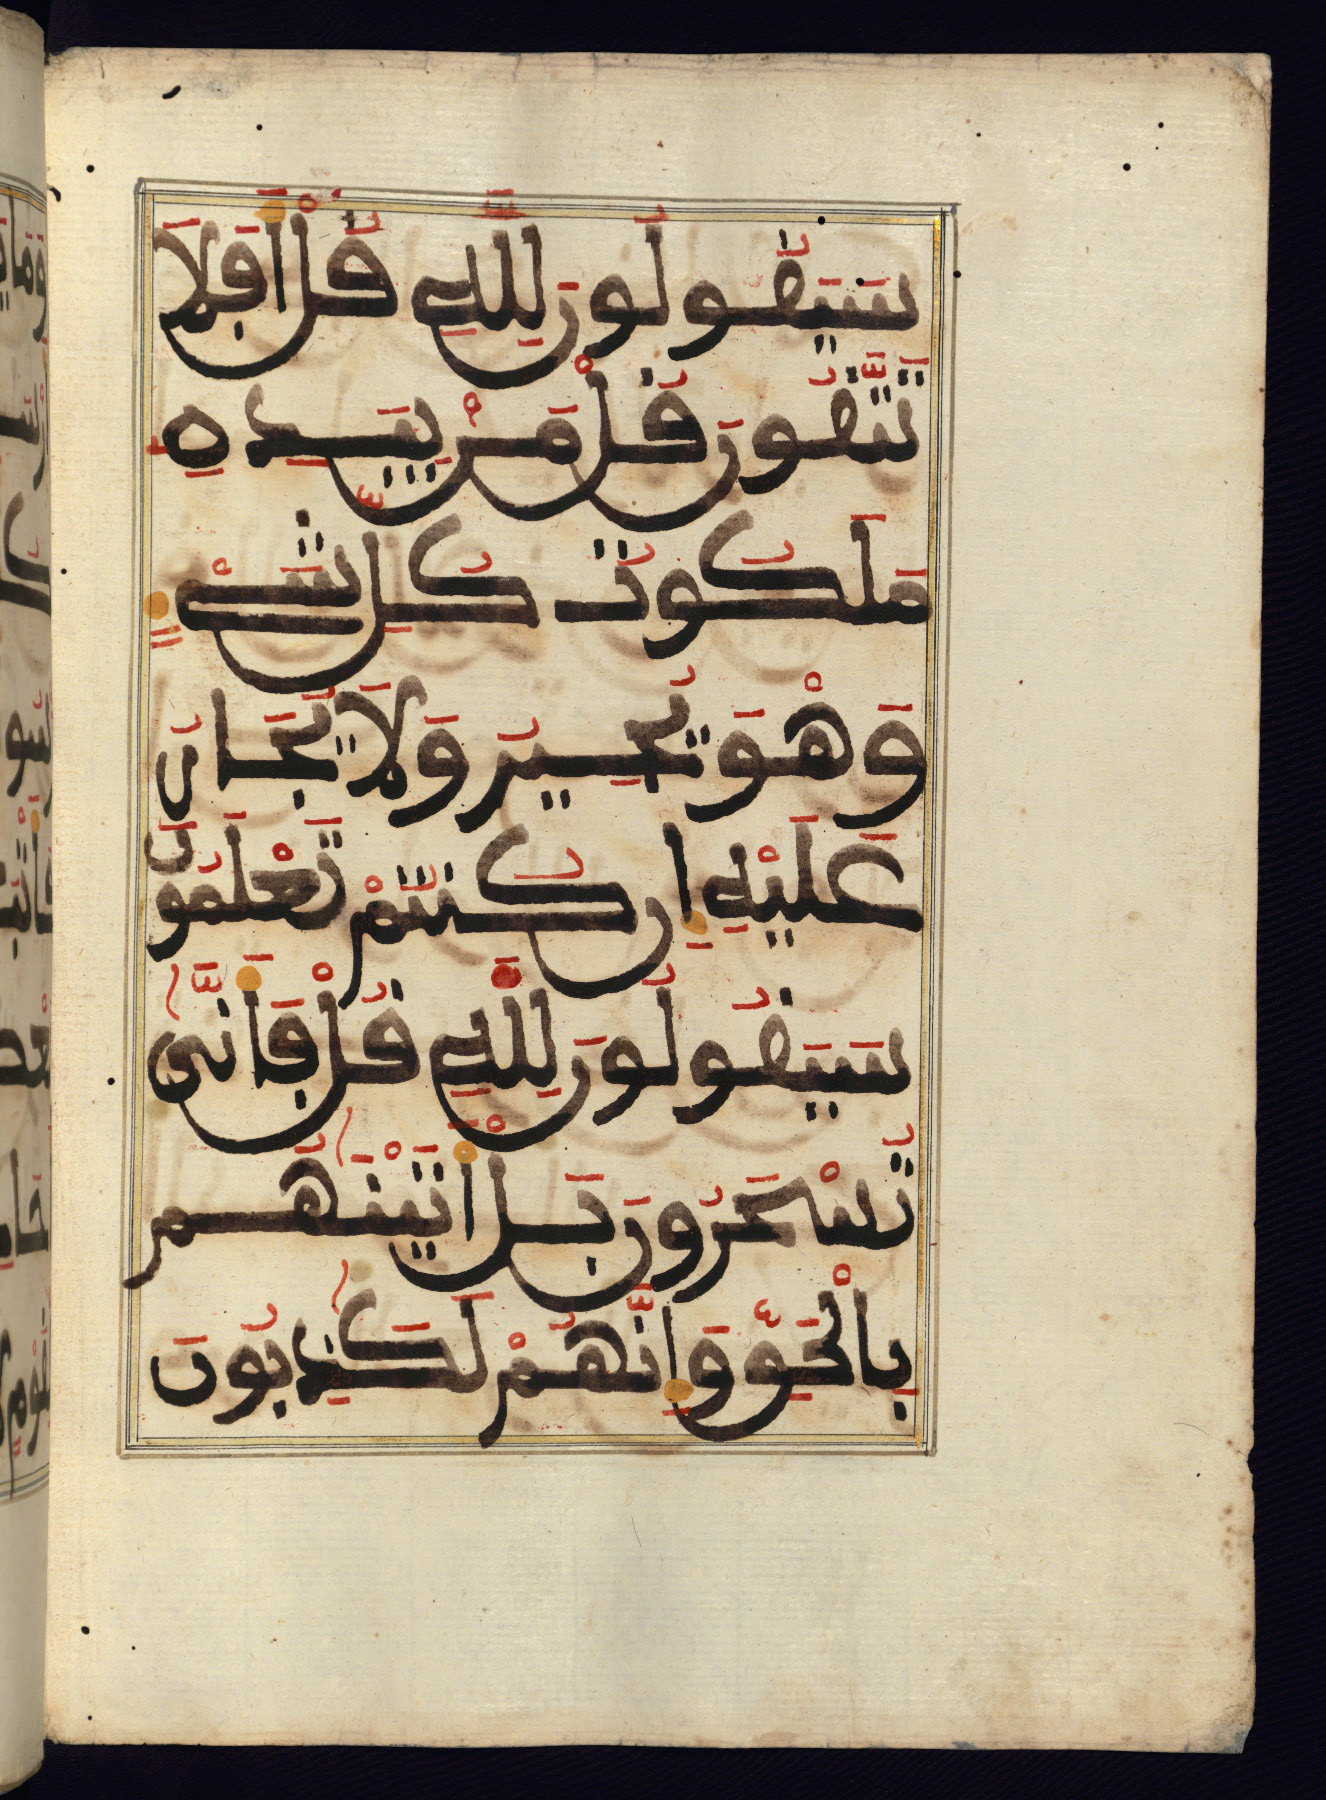 سَيَقُولُونَ لِلَّهِ قُلْ أَفَلَا
تَتَّقُونَ قُلْ مَنْ بِيَدِهِ
مَلَكُوتُ كُلِّ شَيْءٍ
وَهْوَ يُجِيرُ وَلَا يُجَارُ
عَلَيْهِ إِن كُنتُمْ تَعْلَمُونَ
سَيَقُولُونَ لِلَّهِ قُلْ فَأَنَّىٰ
تُسْحَرُونَ بَلْ أَتَيْنَٰهُم
بِالْحَقِّ وَإِنَّهُمْ لَكَٰذِبُونَ